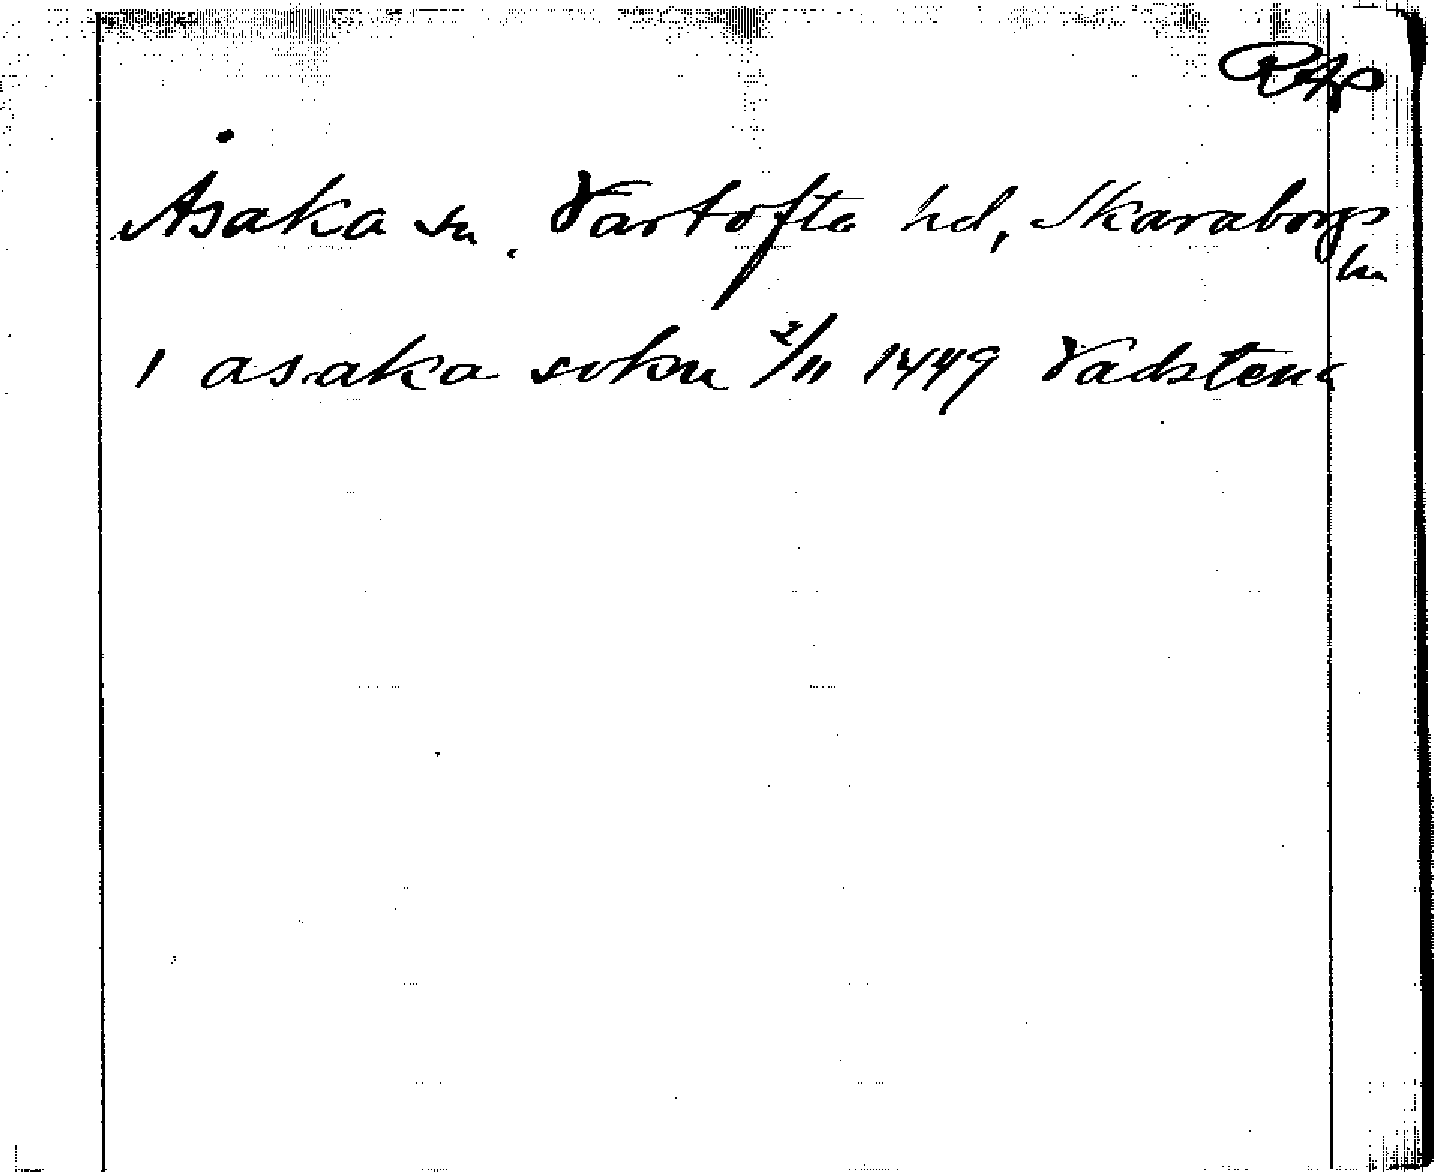 RAp
Åsaka sn, Vartofta hd, Skaraborgs
ln
1 asaka sokn 2/11 1449 Vadstena